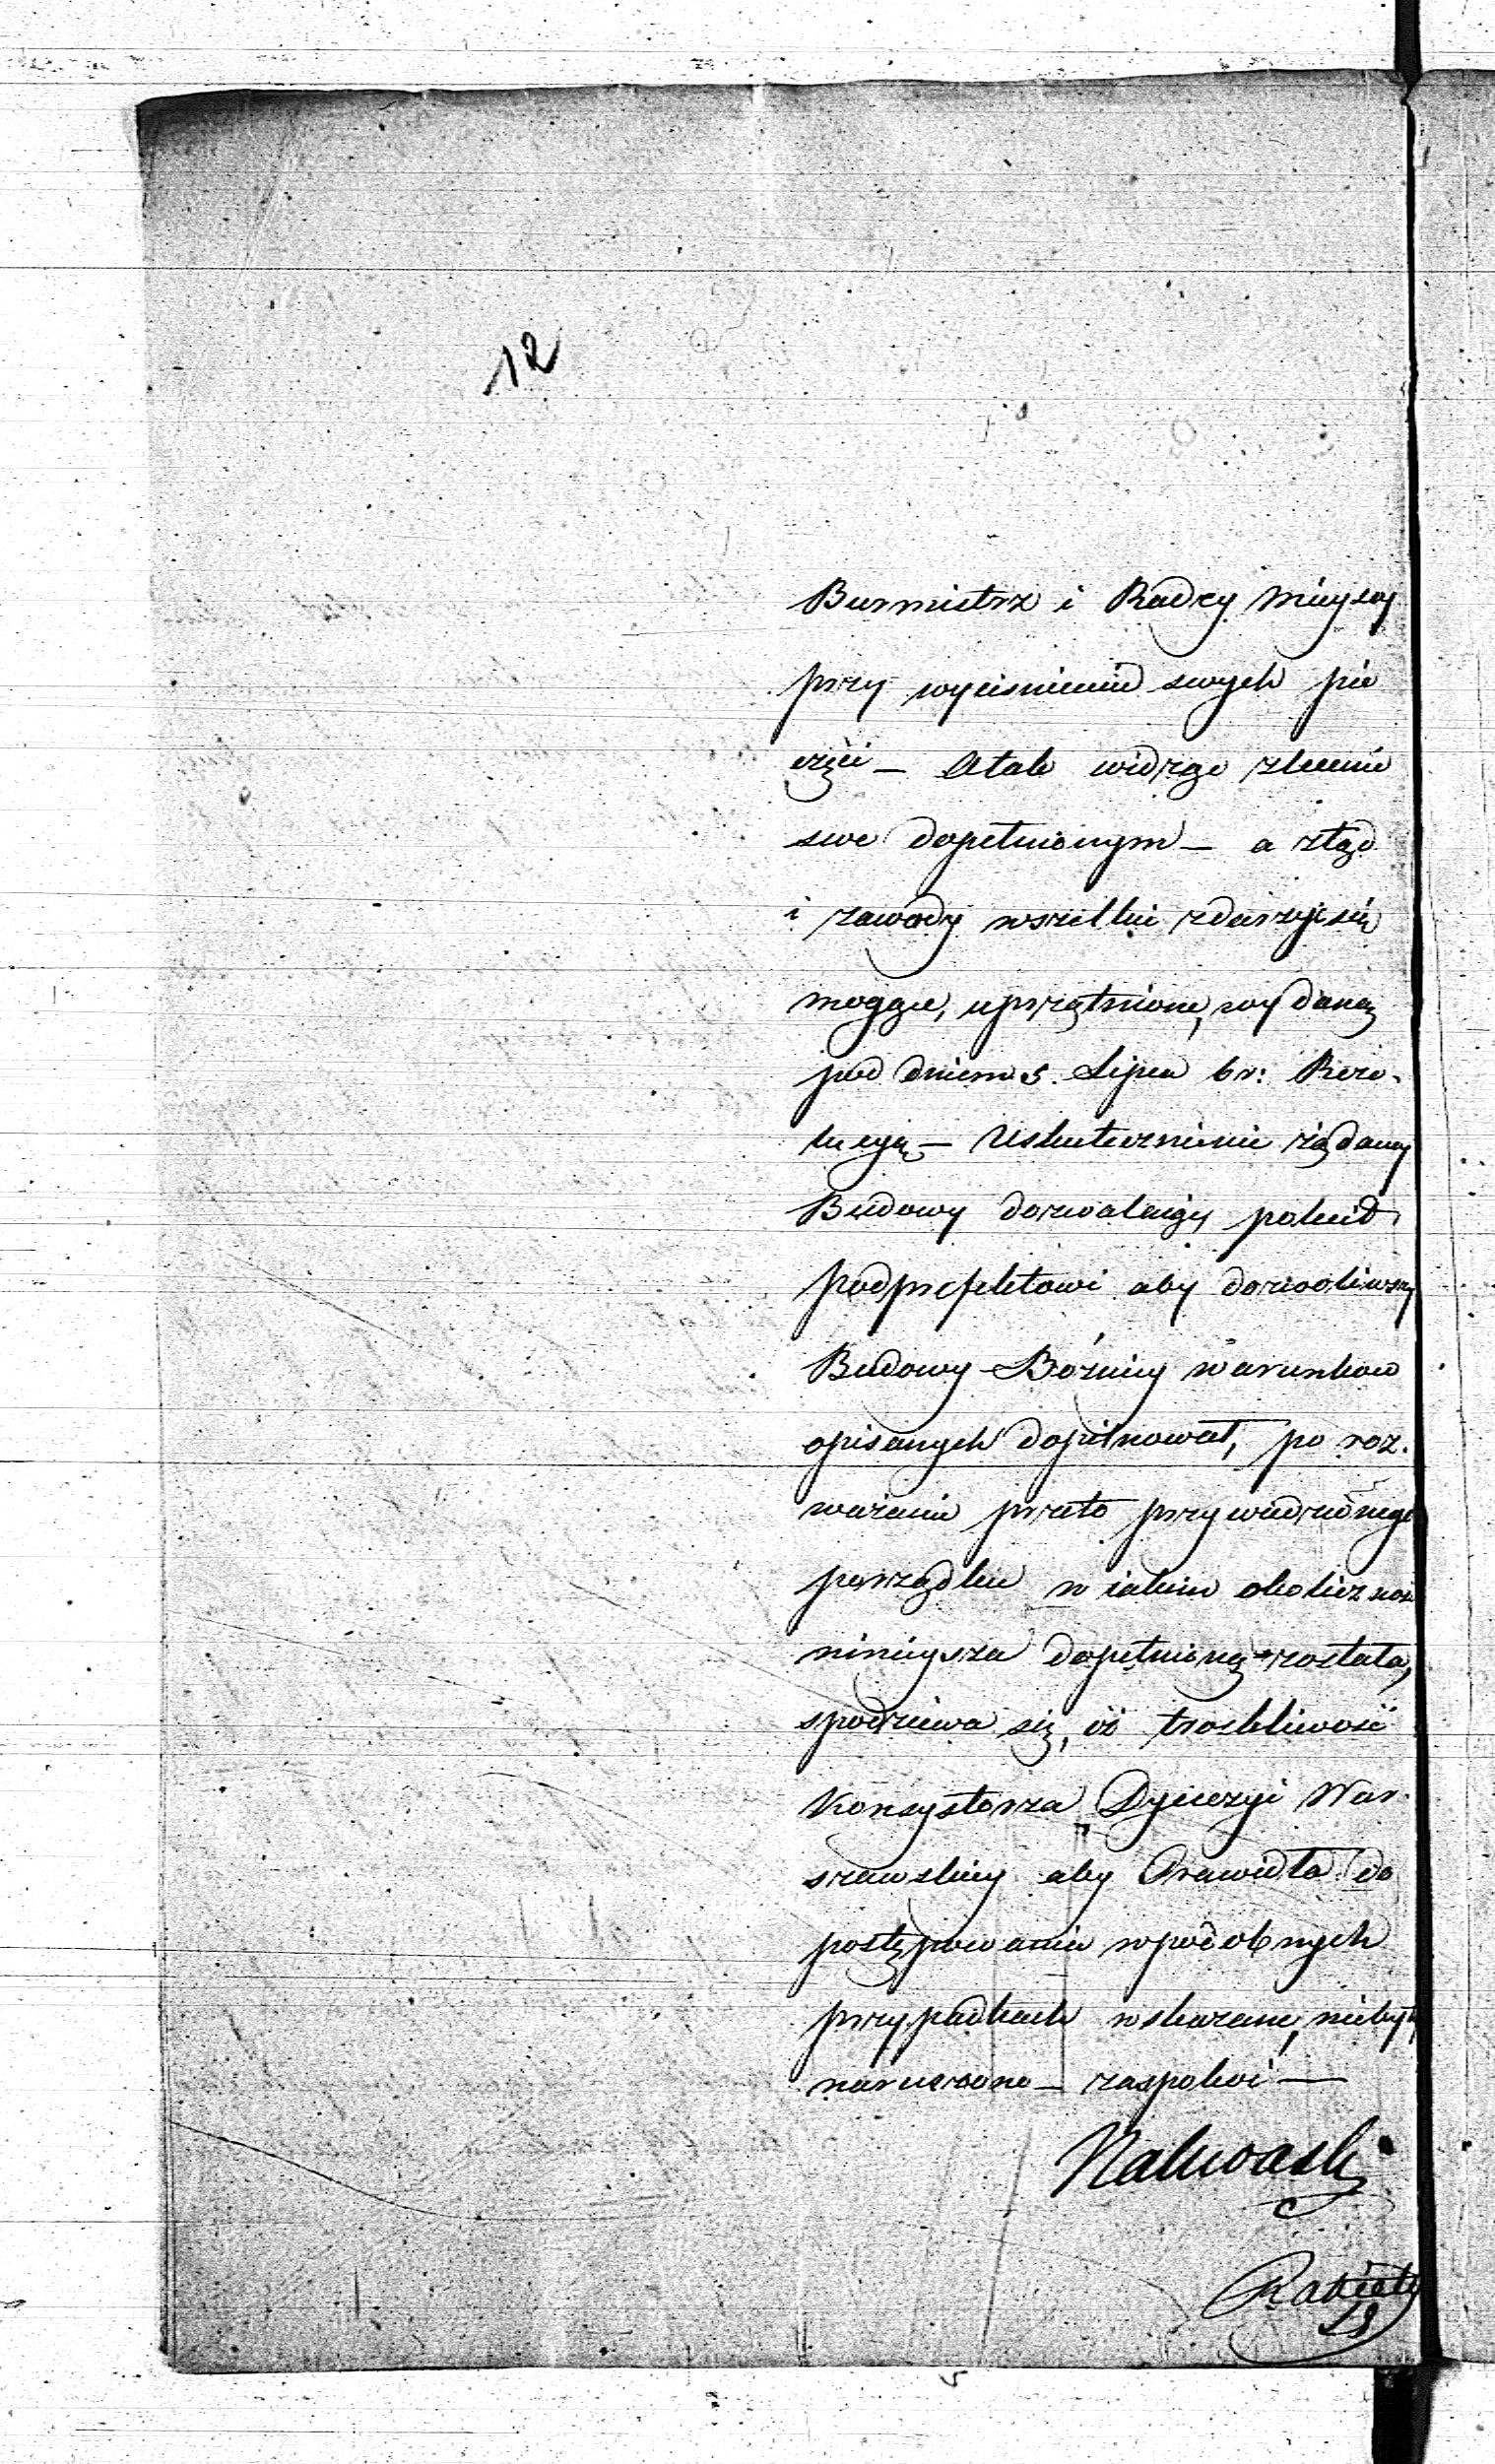 12
Burmistrz i Radcy Mieyscy
przy wyciśnieniu swych pie
częci — Atak widząc zlecenie
swe dopełnionym — a ztąd
i zawody wszelkie zdarzyć się
mogące, uprzątnione, wydaną
pod dniem 5. Lipca br: Rezo-
lucyą — Uskutecznienie żądaney
Budowy dozwalaiąc polecił
Podprefektowi aby dozwoliwszy
Budowy Bóźnicy warunków
opisanych dopilnował, po roz-
ważeniu przeto przywiedzionego
porządku w iakim okoliczność
ninieysza dopełnioną została,
spodziewa się, iż troskliwość
Konsystorza Dyecezyi War-
szawskiey aby Prawidła do
postępowania wpodobnych
przypadkach wskazane, niebyły
naruszone — zaspokoi —
Nakwaski